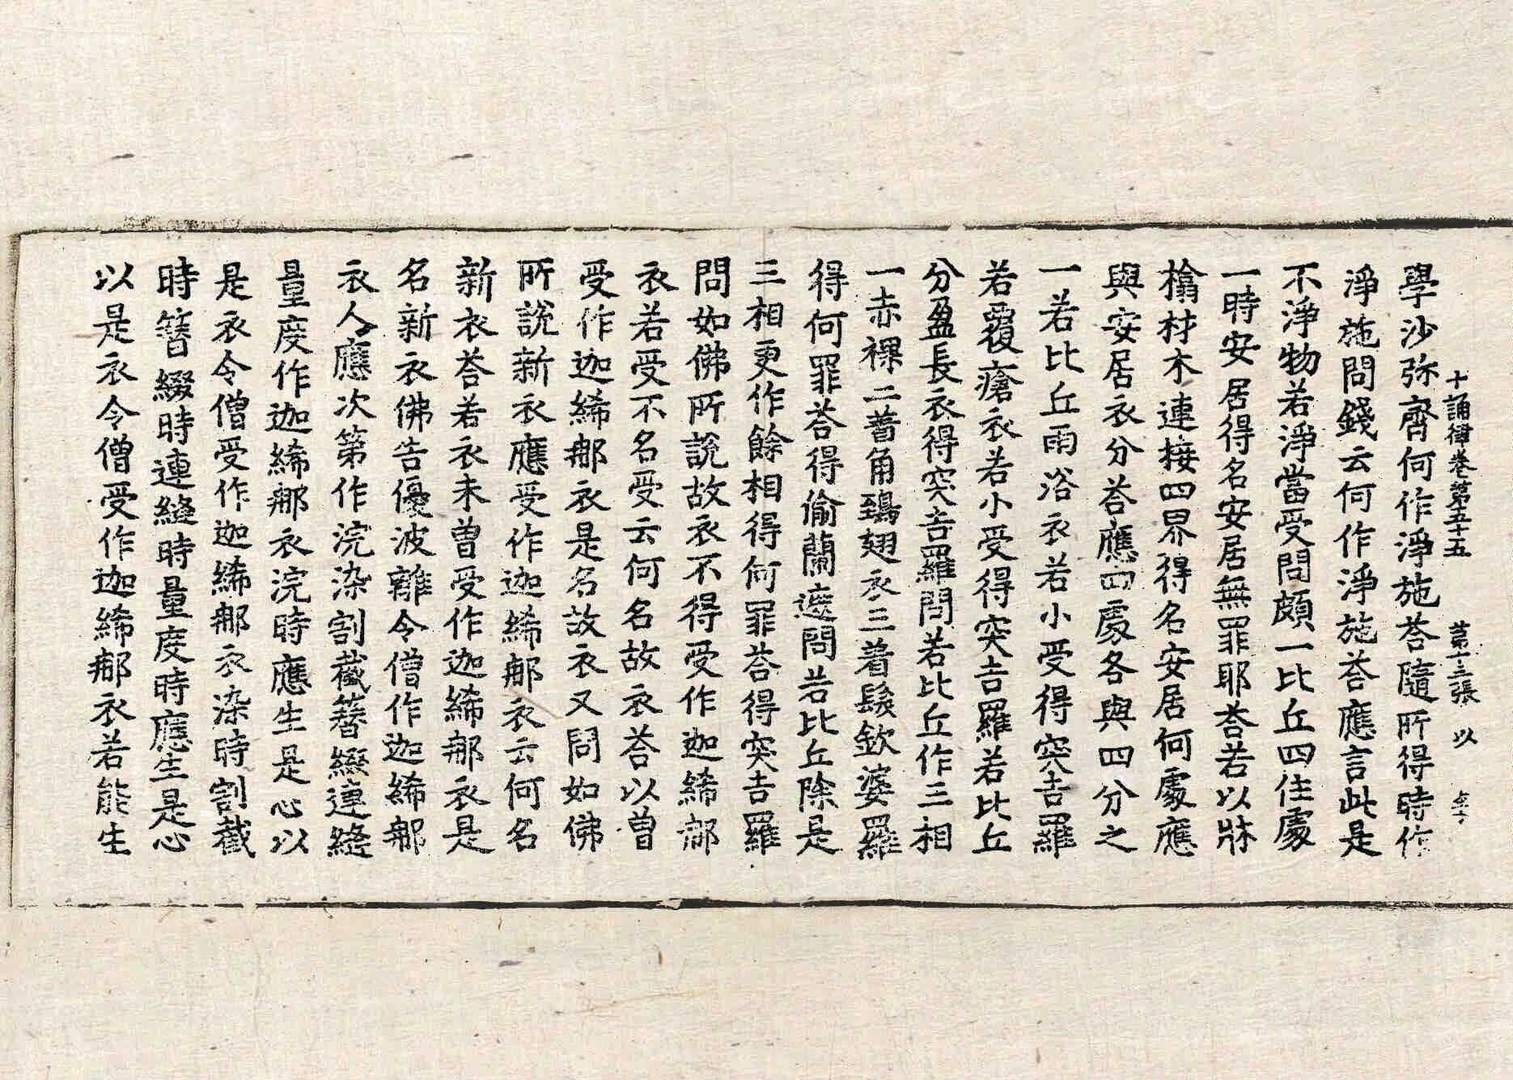 十誦律卷第五十五 第十三張 以
學沙弥齊何作淨施荅隨所得時作
淨施問錢云何作淨施荅應言此是
不淨物若淨當受問頗一比丘四住處
一時安居得名安居無罪耶荅若以牀
榻材木連接四界得名安居何處應
與安居衣分荅應四處各與四分之
一若比丘雨浴衣若小受得突吉羅
若覆瘡衣若小受得突吉羅若比丘
分盈長衣得突吉羅問若比丘作三相
一赤裸二著角鵄翅衣三著髮欽婆羅
得何罪荅得偷蘭遮問若比丘除是
三相更作餘相得何罪荅得突吉羅
問如佛所說故衣不得受作迦絺𨚗
衣若受不名受云何名故衣荅以曾
受作迦絺𨚗衣是名故衣又問如佛
所說新衣應受作迦絺𨚗衣云何名
新衣荅若衣未曾受作迦絺𨚗衣是
名新衣佛告優波離令僧作迦絺𨚗
衣人應次第作浣染割截簪綴連縫
量度作迦絺𨚗衣浣時應生是心以
是衣令僧受作迦絺𨚗衣染時割截
時簪綴時連縫時量度時應生是心
以是衣令僧受作迦絺𨚗衣若能生